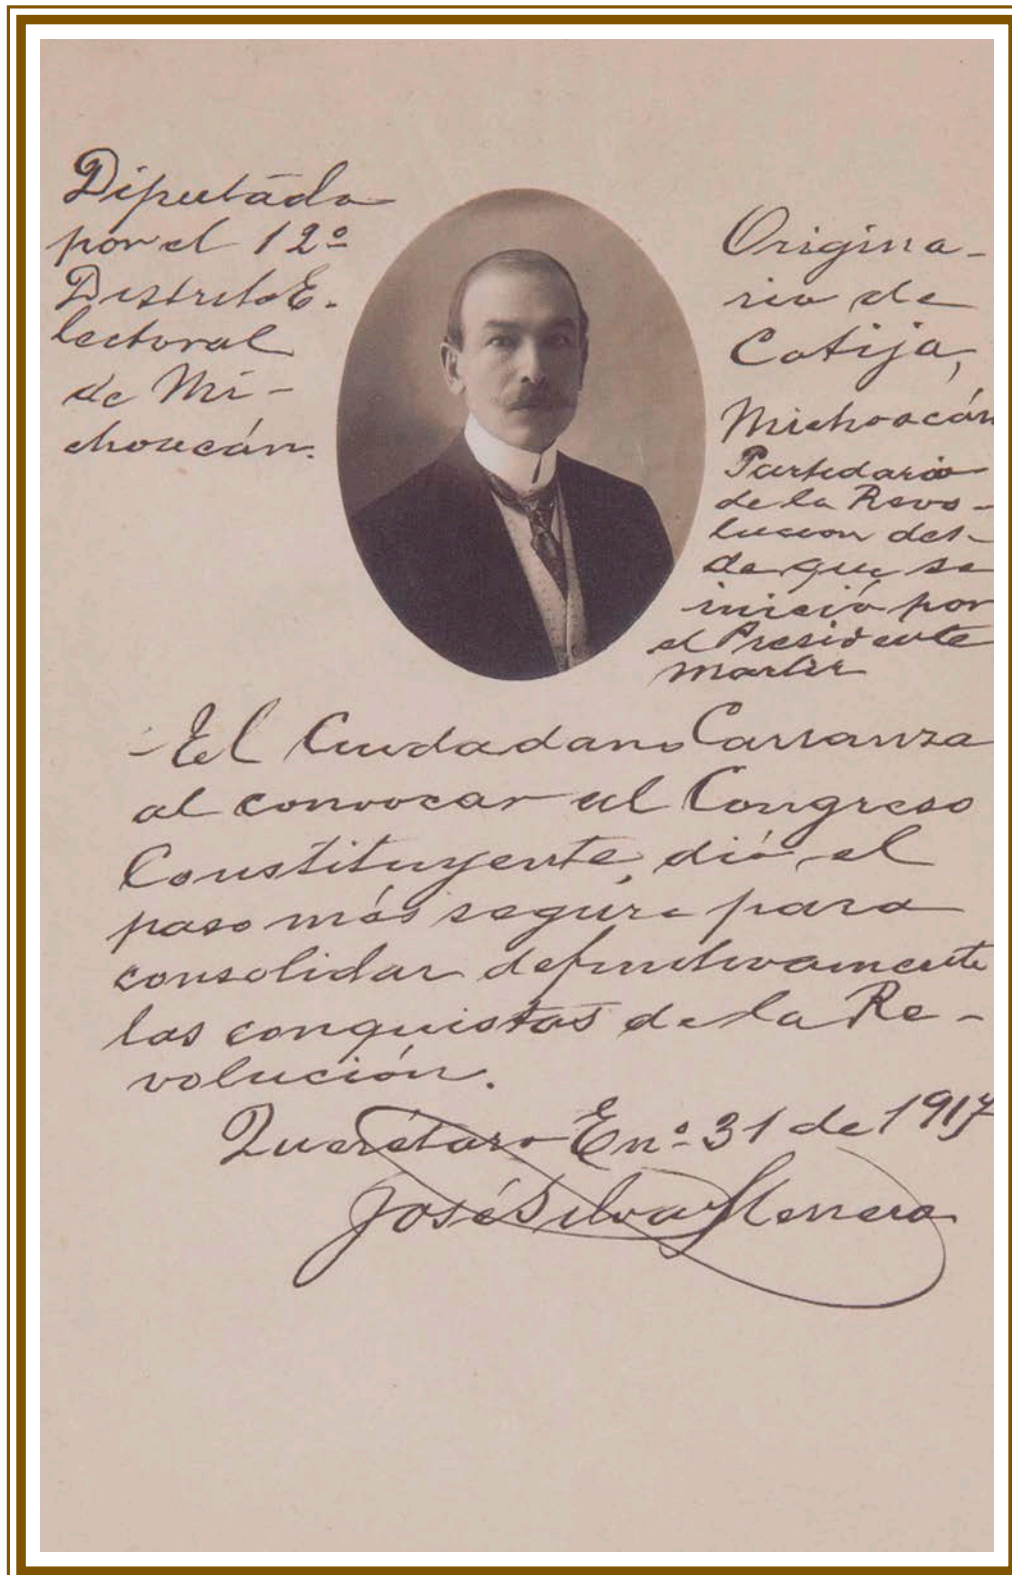 Diputado
por el 12º
Distrito E-
lectoral
de Mi-
choacán.
Origina-
rio de
Cotija,
Michoacán
Partidario
de la Revo-
lucion des-
de que se
inició por
el Presidente
Martir
-El Ciudadano Carranza
al convocar al Congreso
Constituyente, dió el
paso más seguro para
consolidar definitivamente
las conquistas de la Re-
volución.
Querétaro En.º 31 de 1917
José Silva Herrera